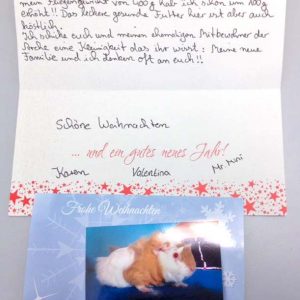 mein Fliegengewicht von 400g hab ich schon um 100g
erhöht!! Das leckere gesunde Futter hier ist aber auch
köstlich.
Ich schicke euch und meinen ehemaligen Mitbewohner der
Arche eine Kleinigkeit das ihr wisst: Meine neue
Familie und ich denken oft an euch!!
Schöne Weihnachten
... und ein gutes neues Jahr!
Karen Valentina Mr Muni
Frohe Weihnachten